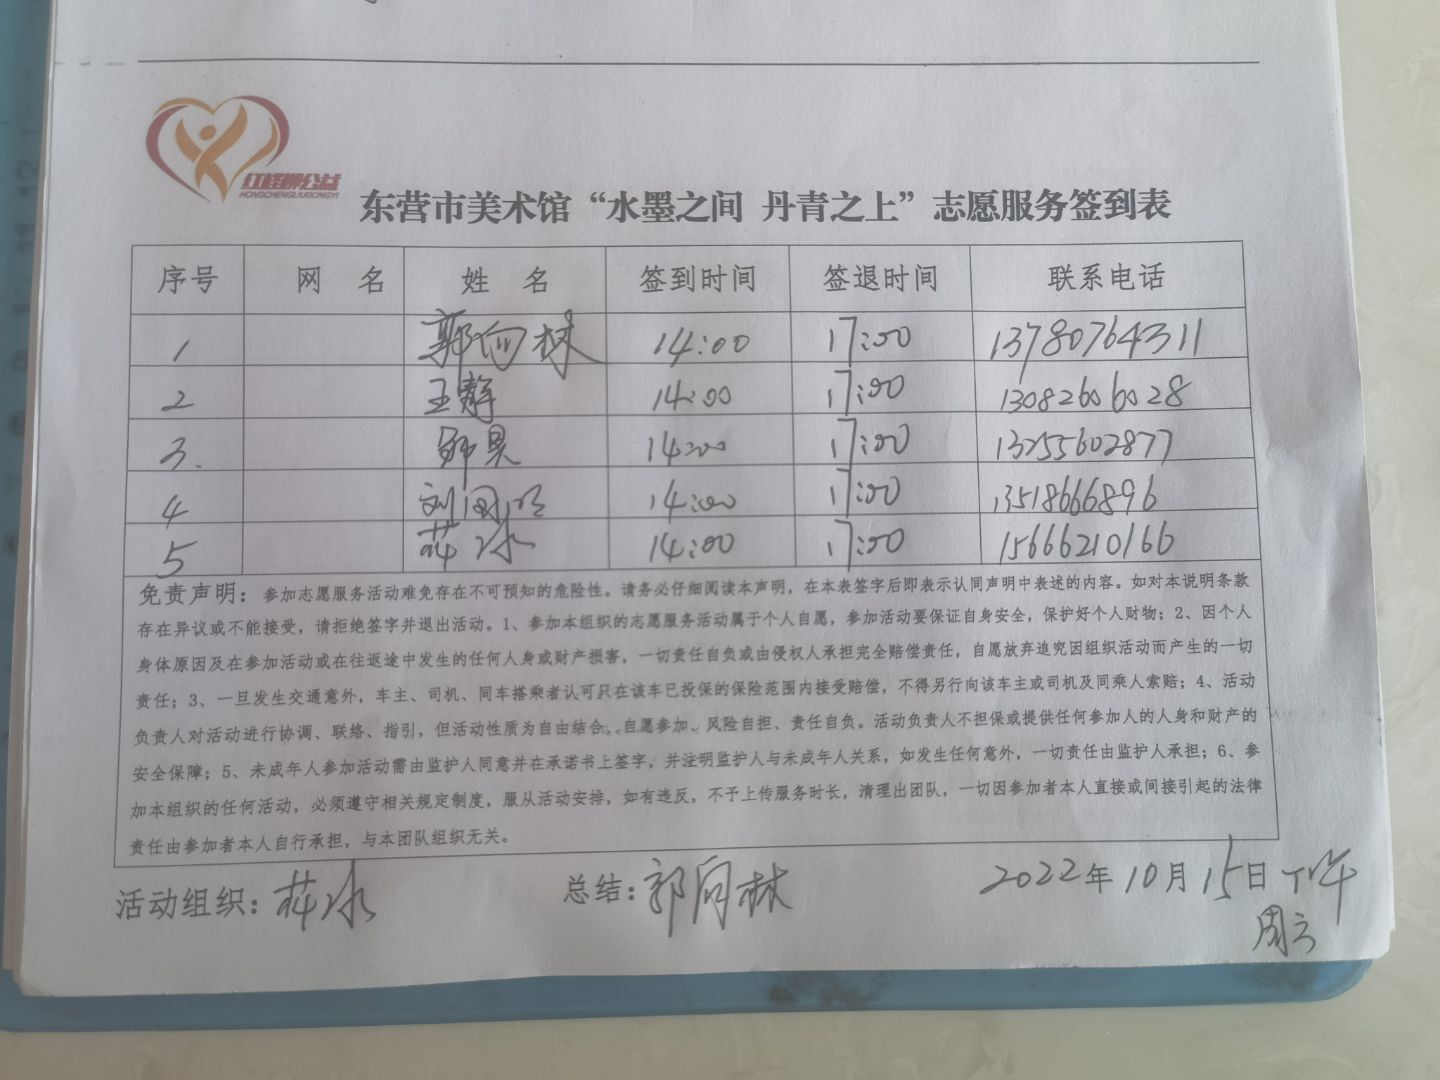 红柽柳公益
HONGCHENGLIUGONGYI
东营市美术馆“水墨之间 丹青之上”志愿服务签到表
序号 网 名 姓 名 签到时间 签退时间 联系电话
1 郭向林 14:00 17:00 13780764311
2 王静 14:00 17:00 13082606028
3. 14:00 17:00 13255602877
4 刘国明 14:00 17:00 13518666896
5 冰 14:00 17:00 15666210166
免责声明：参加志愿服务活动难免存在不可预知的危险性。请务必仔细阅读本声明，在本表签字后即表示认同声明中表述的内容。如对本说明条款
存在异议或不能接受，请拒绝签字并退出活动。1、参加本组织的志愿服务活动属于个人自愿，参加活动要保证自身安全，保护好个人财物；2、因个人
身体原因及在参加活动或在往返途中发生的任何人身或财产损害，一切责任自负或由侵权人承担完全赔偿责任，自愿放弃追究因组织活动而产生的一切
责任；3、一旦发生交通意外，车主、司机、同车搭乘者认可只在该车已投保的保险范围内接受赔偿，不得另行向该车主或司机及同乘人索赔；4、活动
负责人对活动进行协调、联络、指引，但活动性质为自由结合、自愿参加、风险自担、责任自负。活动负责人不担保或提供任何参加人的人身和财产的
安全保障；5、未成年人参加活动需由监护人同意并在承诺书上签字，并注明监护人与未成年人关系，如发生任何意外，一切责任由监护人承担；6、参
加本组织的任何活动，必须遵守相关规定制度，服从活动安排，如有违反，不予上传服务时长，清理出团队，一切因参加者本人直接或间接引起的法律
责任由参加者本人自行承担，与本团队组织无关。
活动组织：冰 总结：郭向林 2022年10月15日下午
周六